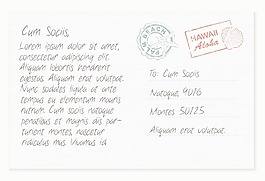 Cum Sociis,
Lorem ipsum dolor sit amet,
consectetur adipiscing elit.
Aliquam lobortis hendrerit
egestas. Aliquam erat volutpat.
Nunc sodales ligula at ante
tempus eu elementum mauris
rutrum. Cum sociis natoque
penatibus et magnis dis par-
turient montes, nascetur
ridiculus mus. Vivamus id
PALM BEACH
HAWAII
Aloha
To: Cum Sociis
Natoque, 4016
Montes 50125
Aliquam erat volutpat.